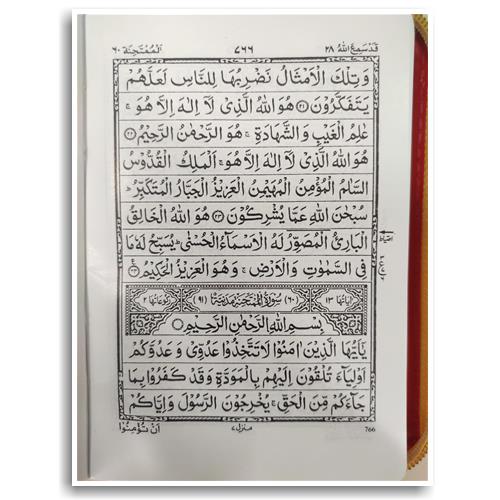 قَدْ سَمِعَ اللهُ ٢٨ ٧٦٦ الْمُمْتَحِنَة ٦٠
وَتِلْكَ الْاَمْثَالُ نَضْرِبُهَا لِلنَّاسِ لَعَلَّهُمْ
يَتَفَكَّرُوْنَ ﴿٢١﴾ هُوَ اللهُ الَّذِىْ لَآ اِلٰهَ اِلَّا هُوَ ۚ
عٰلِمُ الْغَيْبِ وَالشَّهَادَةِ ۚ هُوَ الرَّحْمٰنُ الرَّحِيْمُ ﴿٢٢﴾
هُوَ اللهُ الَّذِىْ لَآ اِلٰهَ اِلَّا هُوَ ۚ اَلْمَلِكُ الْقُدُّوْسُ
السَّلٰمُ الْمُؤْمِنُ الْمُهَيْمِنُ الْعَزِيْزُ الْجَبَّارُ الْمُتَكَبِّرُ ؕ
سُبْحٰنَ اللهِ عَمَّا يُشْرِكُوْنَ ﴿٢٣﴾ هُوَ اللهُ الْخَالِقُ
الْبَارِئُ الْمُصَوِّرُ لَهُ الْاَسْمَآءُ الْحُسْنٰى ؕ يُسَبِّحُ لَهٗ مَا
فِى السَّمٰوٰتِ وَالْاَرْضِ ۚ وَهُوَ الْعَزِيْزُ الْحَكِيْمُ ﴿٢٤﴾
اٰيَاتُهَا ١٣ ﴿٦٠﴾ سُوْرَةُ الْمُمْتَحِنَةِ مَدَنِيَّةٌ ﴿٩١﴾ رُكُوْعَاتُهَا ٢
بِسْمِ اللهِ الرَّحْمٰنِ الرَّحِيْمِ
يٰٓاَيُّهَا الَّذِيْنَ اٰمَنُوْا لَا تَتَّخِذُوْا عَدُوِّىْ وَعَدُوَّكُمْ
اَوْلِيَآءَ تُلْقُوْنَ اِلَيْهِمْ بِالْمَوَدَّةِ وَقَدْ كَفَرُوْا بِمَا
جَآءَكُمْ مِّنَ الْحَقِّ ۚ يُخْرِجُوْنَ الرَّسُوْلَ وَاِيَّاكُمْ
766 منزل٧ اَنْ تُؤْمِنُوْا